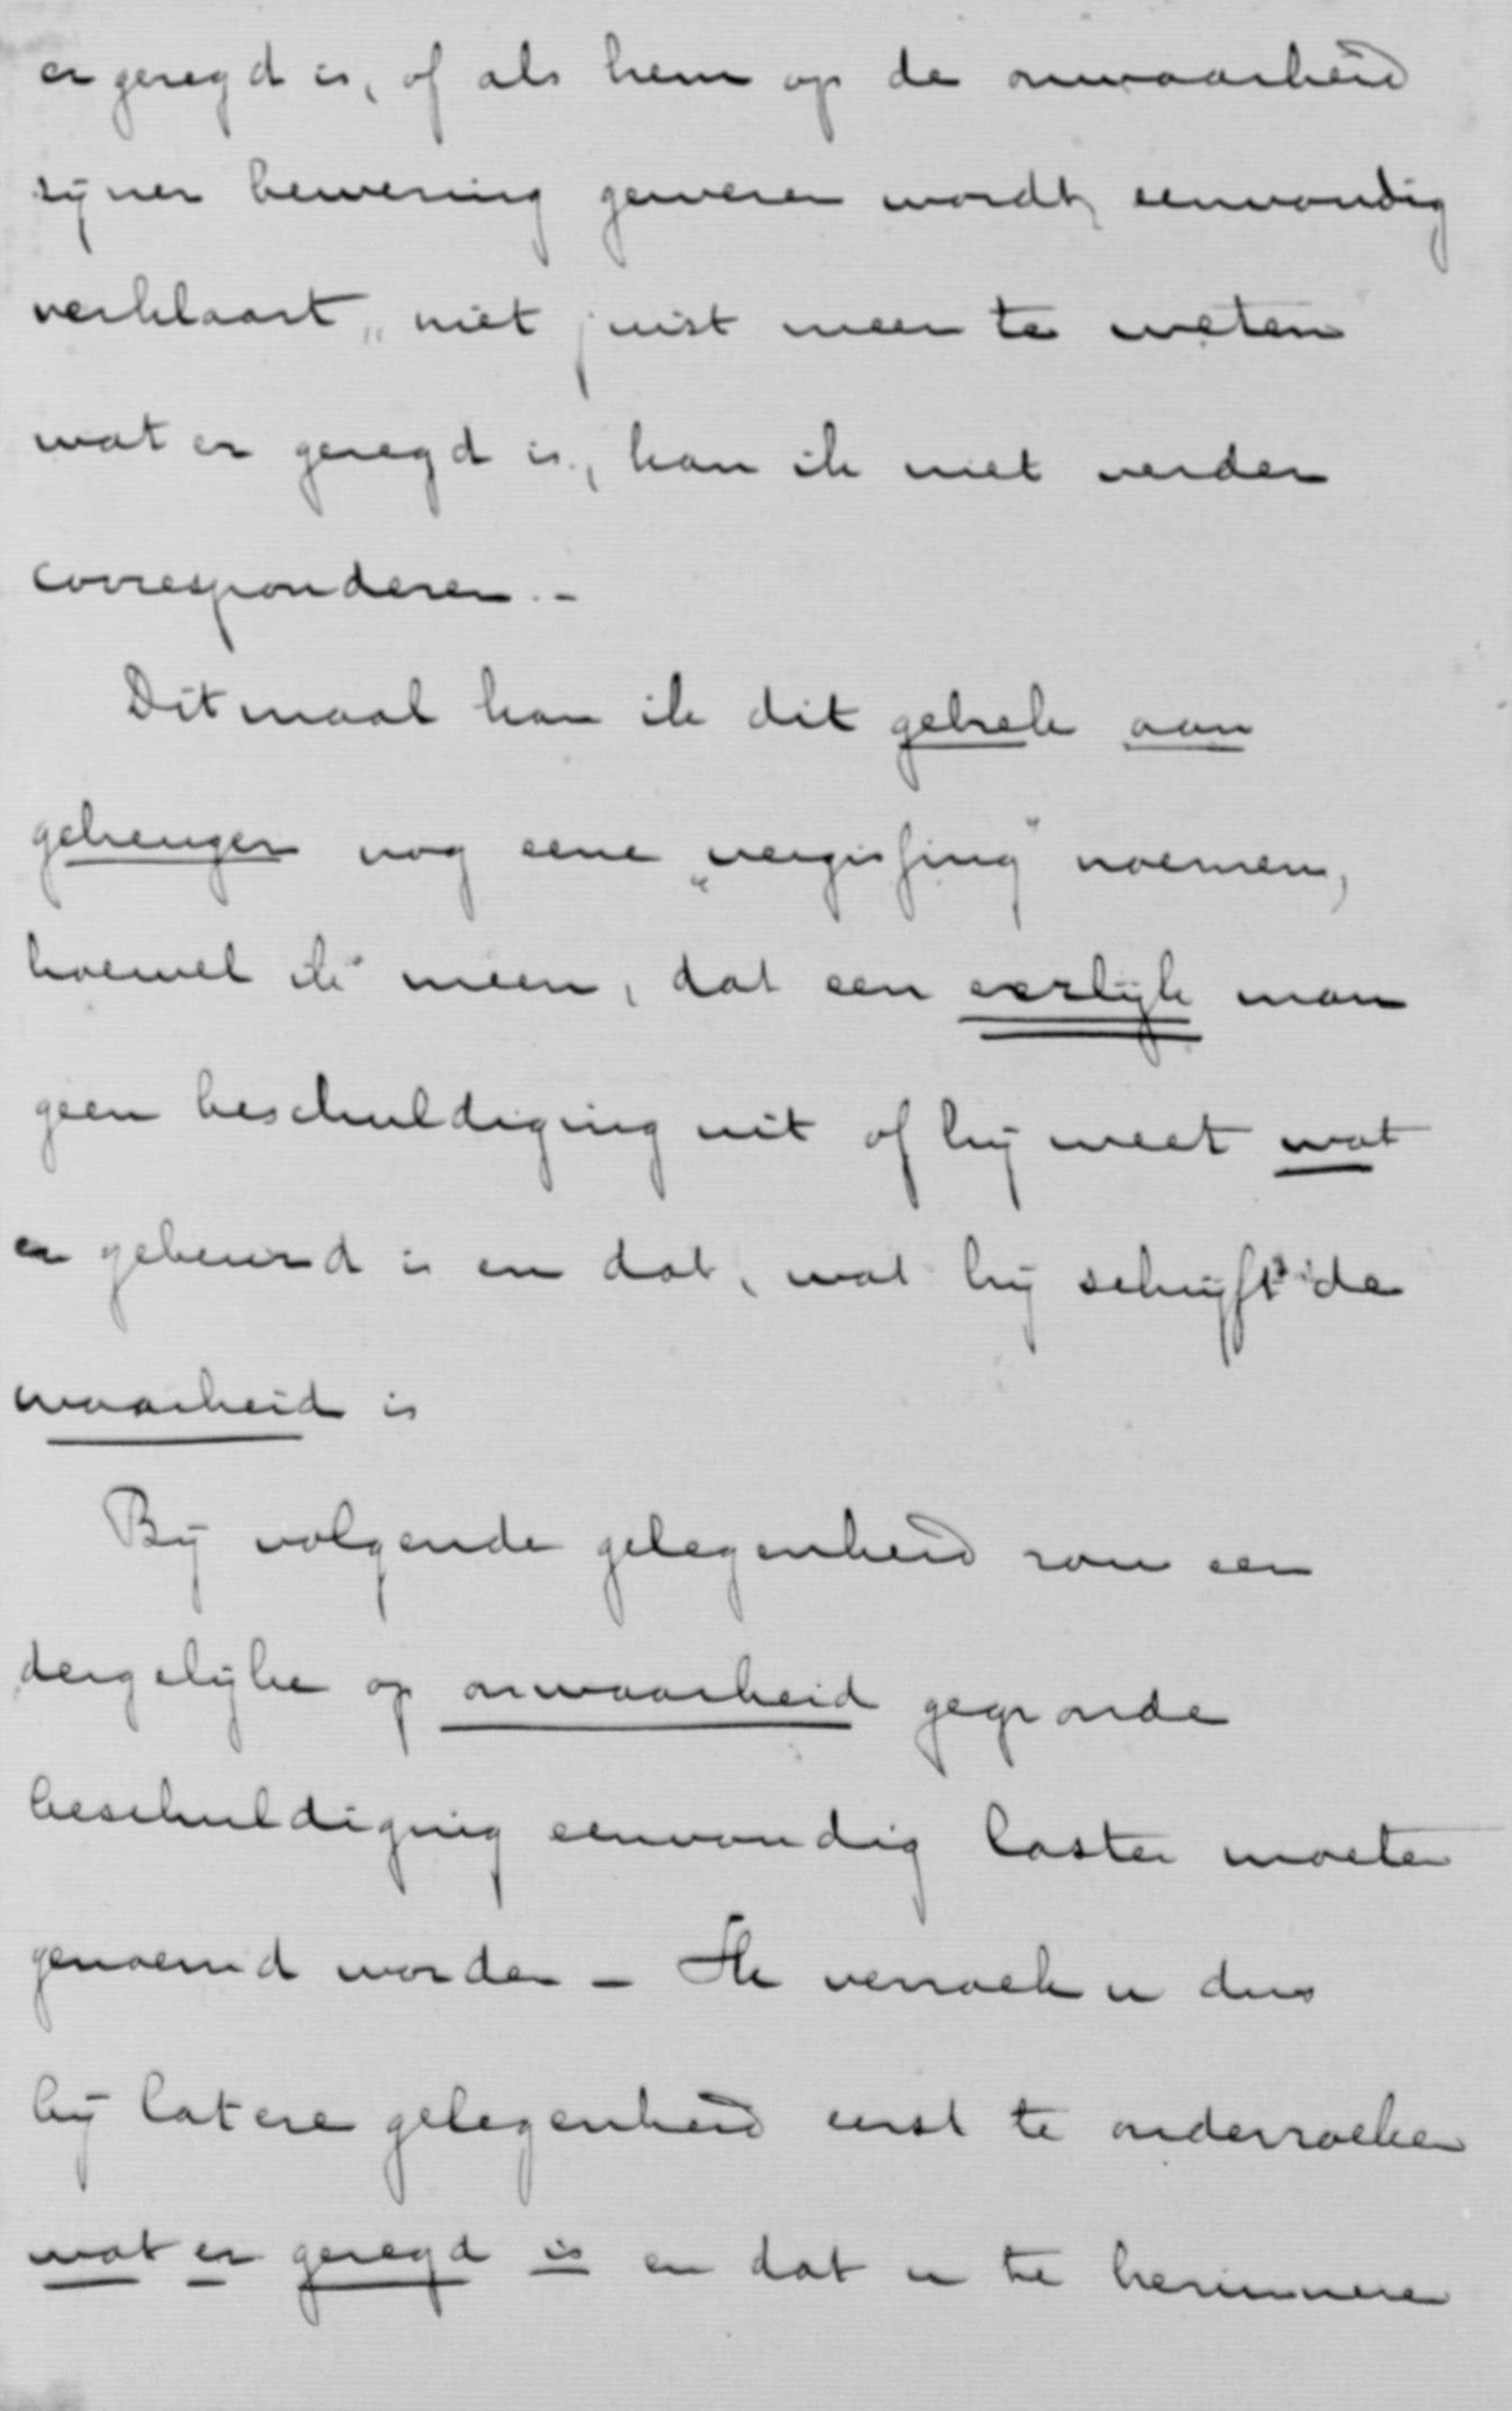 er gezegd is, of als hem op de onwaarheid
zijner bewering gewezen wordt, eenvoudig
verklaart „niet juist meer te weten
wat er gezegd is, kan ik niet verder
corresponderen.-
Ditmaal kan ik dit gebrek aan
geheugen nog eene „vergissing" noemen,
hoewel ik meen, dat een eerlijk man
geen beschuldiging uit of hij weet wat
er gebeurd is en dat, wat hij schrijft de
waarheid is
Bij volgende gelegenheid zou een
dergelijke op onwaarheid gegronde
beschuldiging eenvoudig laster moeten
genoemd worden - Ik verzoek u dus
bij latere gelegenheid eerst te onderzoeken
wat er gezegd is en dat u te herinneren